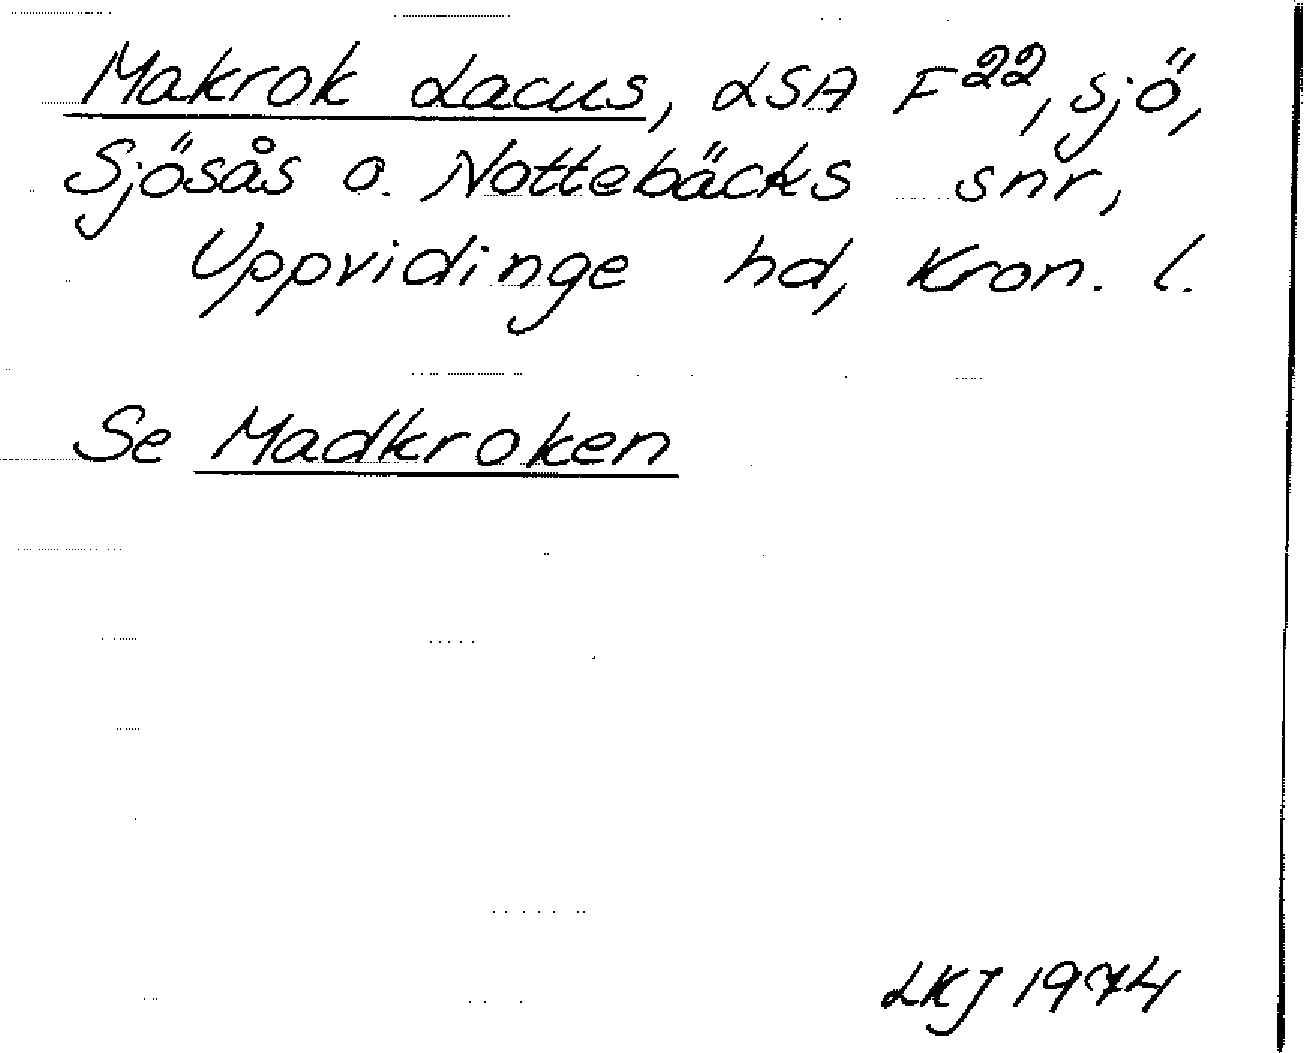 Makrok Lacus, LSA F22, sjö,
Sjösås o. Nottebäcks snr,
Uppvidinge hd, Kron. l.
Se Madkroken
LKJ 1974